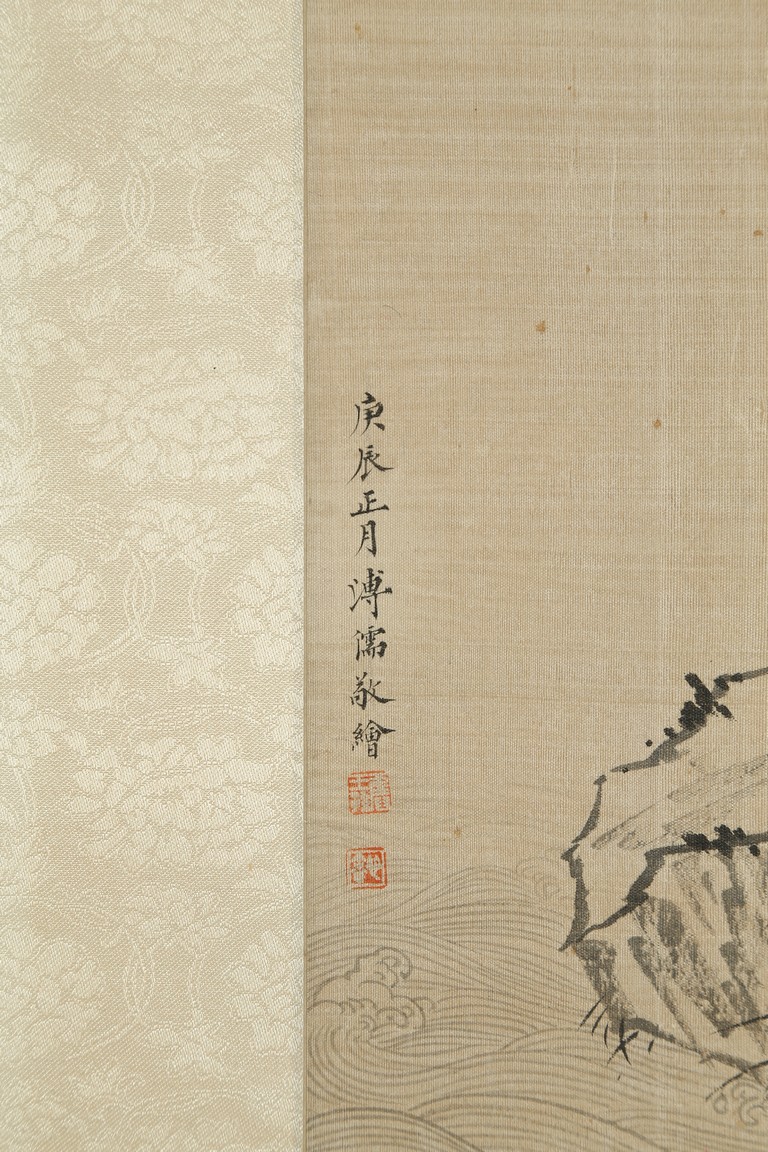 庚辰正月溥儒敬繪